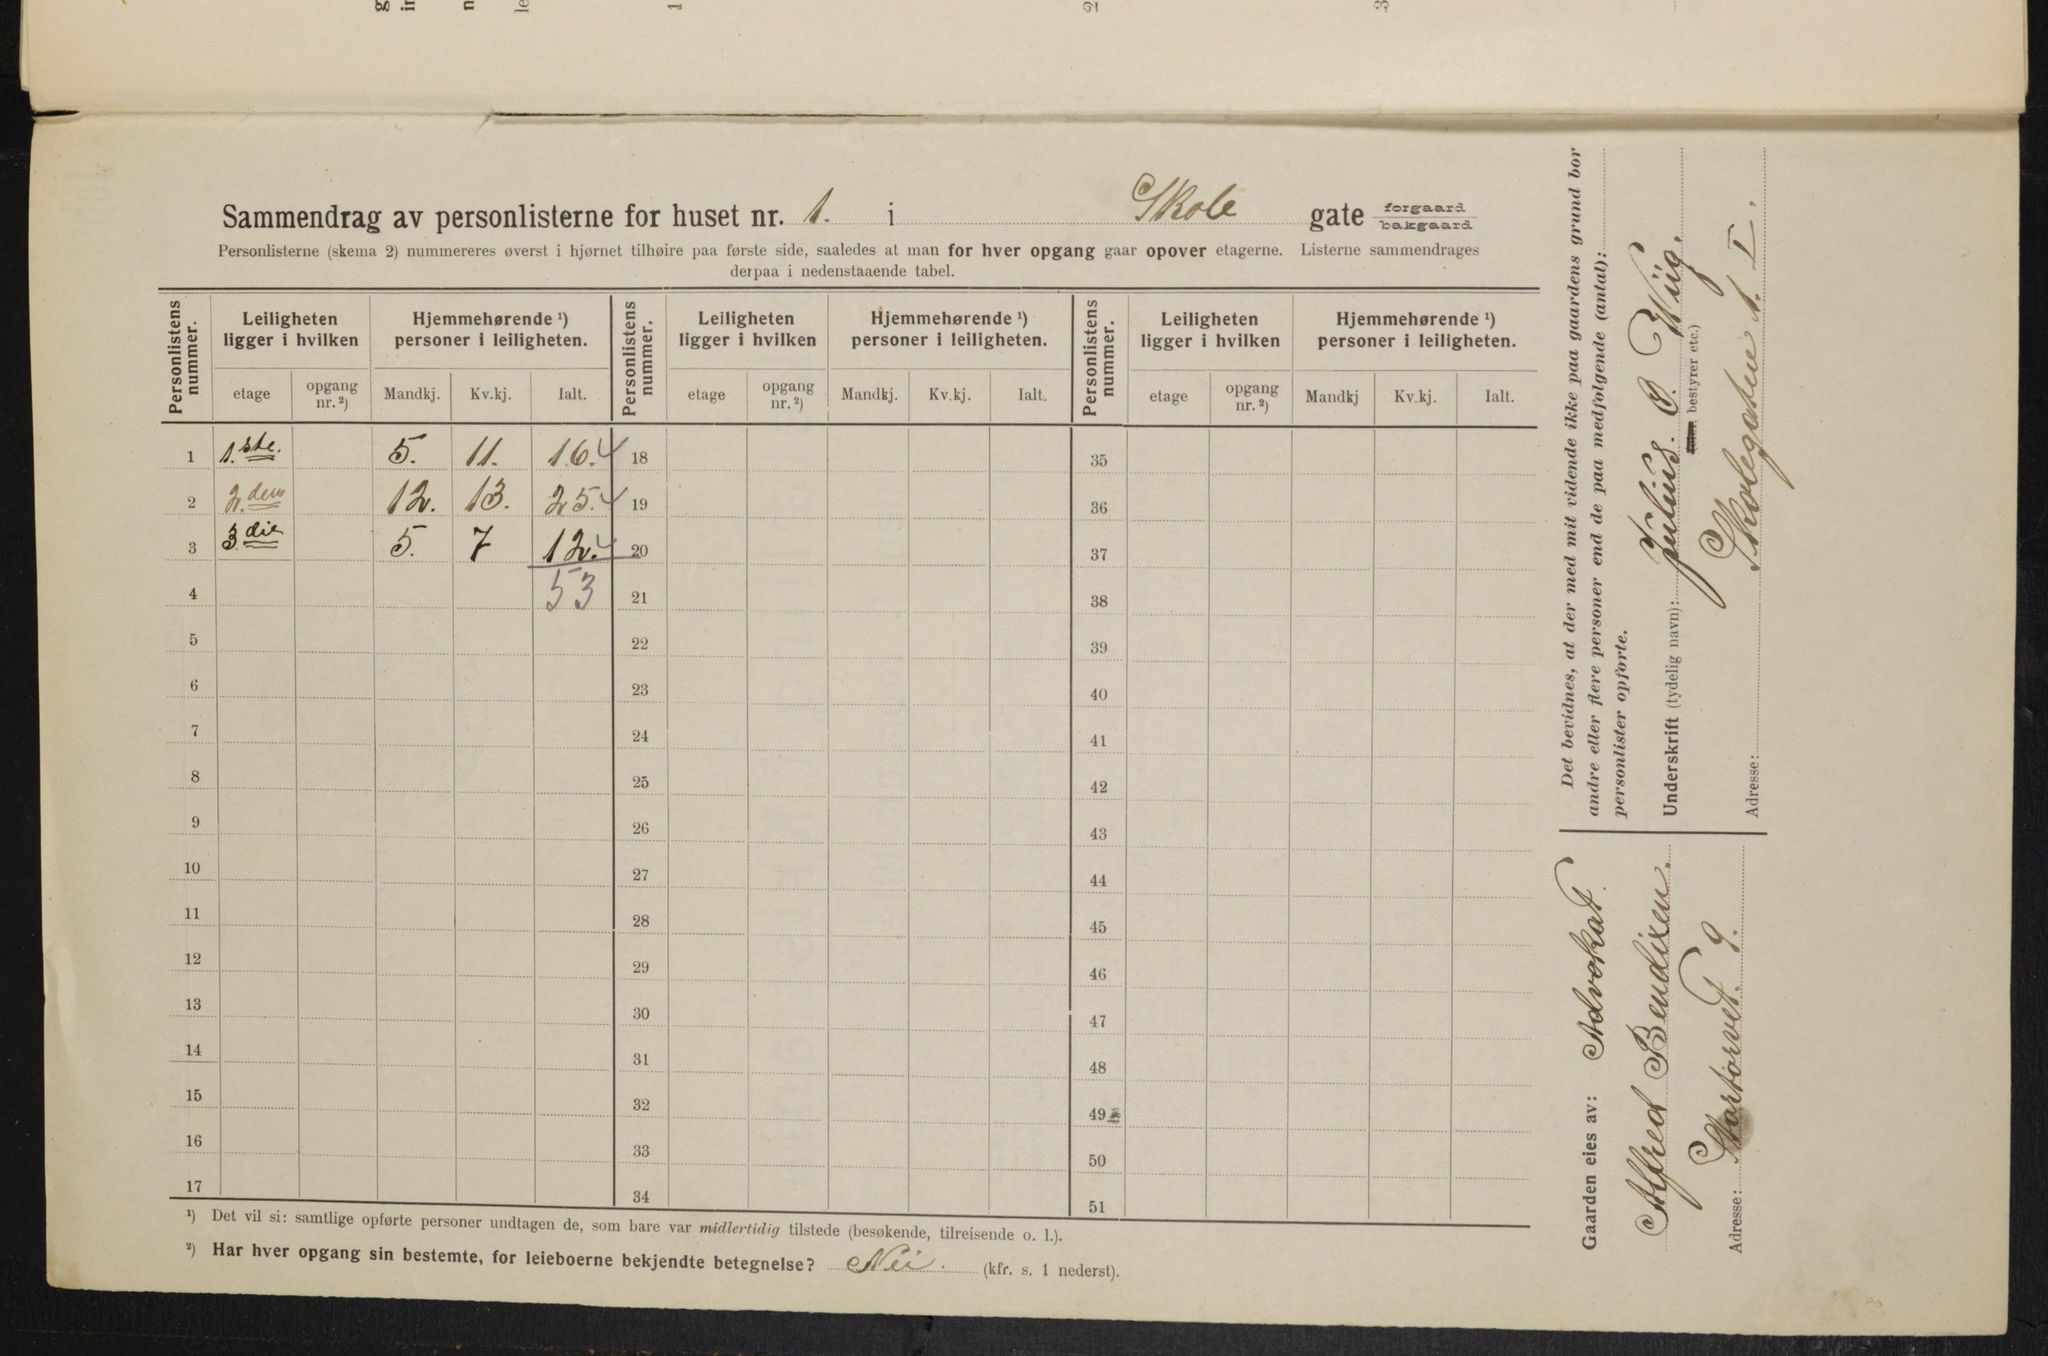 Sammendrag av personlisterne for huset nr. 1. i Skole gate forgaard bakgaard
Personlisterne (skema 2) nummereres øverst i hjørnet tilhøire paa første side, saaledes at man for hver opgang gaar opover etagerne. Listerne sammendrages
derpaa i nedenstaaende tabel.
Personlistens nummer. Leiligheten ligger i hvilken Hjemmehørende ¹) personer i leiligheten. Personlistens nummer. Leiligheten ligger i hvilken Hjemmehørende ¹) personer i leiligheten. Personlistens nummer. Leiligheten ligger i hvilken Hjemmehørende ¹) personer i leiligheten.
etage opgang nr. ²) Mandkj. Kv.kj. Ialt. etage opgang nr. ²) Mandkj. Kv.kj. Ialt. etage opgang nr. ²) Mandkj Kv.kj. Ialt.
1 1.ste. 5. 11. 16. 18 35
2 2.den 12. 13. 25. 19 36
3 3.die 5. 7 12. 20 37
4 53 21 38
5 22 39
6 23 40
7 24 41
8 25 42
9 26 43
10 27 44
11 28 45
12 29 46
13 30 47
14 31 48
15 32 49
16 33 50
17 34 51
¹) Det vil si: samtlige opførte personer undtagen de, som bare var midlertidig tilstede (besøkende, tilreisende o. l.).
²) Har hver opgang sin bestemte, for leieboerne bekjendte betegnelse? Nei. (kfr. s. 1 nederst).
Det bevidnes, at der med mit vidende ikke paa gaardens grund bor
andre eller flere personer end de paa medfølgende (antal):
personlister opførte.
Underskrift (tydelig navn): Julius. O. Wiig.
bestyrer etc.)
Adresse: Skolegaten 1. I.
Gaarden eies av: Advokat
Alfred Bendixen.
Adresse: Stortorvet. 9.